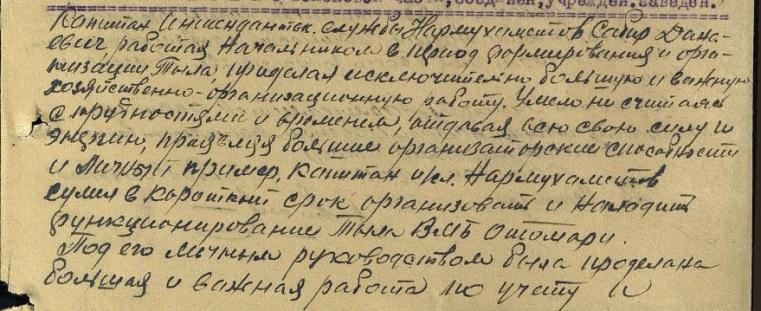 части, соединен, учрежден. заведен.
Капитан Интендантск. службы Нармухаметов Сабир Дана-
евич, работая Начальником в период формирования и орга-
низации Тыла, проделал исключительно большую и важную
хозяйственно-организационную работу. Умело не считаясь
с трудностями и временем, отдавая всю свою силу и
энергию, проявляя большие организаторские способности
и личный пример, капитан и/сл. Нармухаметов
сумел в короткий срок организовать и наладить
функционирование Тыла ВМБ Отомари.
Под его личным руководством была проделана
большая и важная работа по учету и